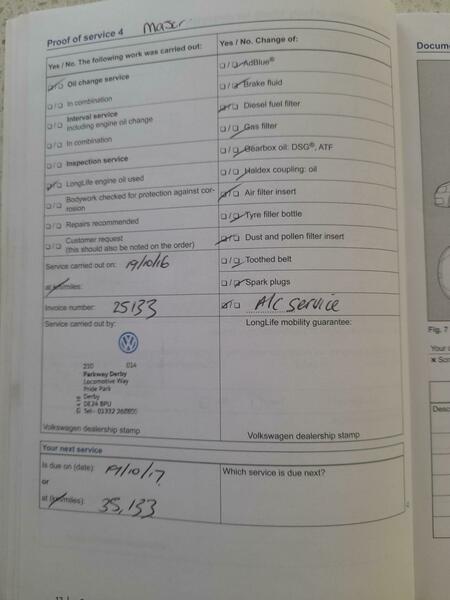 Proof of service 4 Major
Yes / No. The following work was carried out:
Oil change service
In combination
Interval service
including engine oil change
In combination
Inspection service
LongLife engine oil used
Bodywork checked for protection against cor-
rosion
Repairs recommended
Customer request
(this should also be noted on the order)
Service carried out on: 19/10/16
at km/miles:
Invoice number: 25133
Service carried out by:
230 014
Parkway Derby
Locomotive Way
Pride Park
Derby
DE24 8PU
Tel:- 01332 268800
Volkswagen dealership stamp
Yes / No. Change of:
AdBlue®
Brake fluid
Diesel fuel filter
Gas filter
Gearbox oil: DSG®, ATF
Haldex coupling: oil
Air filter insert
Tyre filler bottle
Dust and pollen filter insert
Toothed belt
Spark plugs
A/C service
LongLife mobility guarantee:
Volkswagen dealership stamp
Your next service
Is due on (date): 19/10/17
or
at (km/miles): 35,133
Which service is due next?
Docum
Fig. 7
Your
Desc